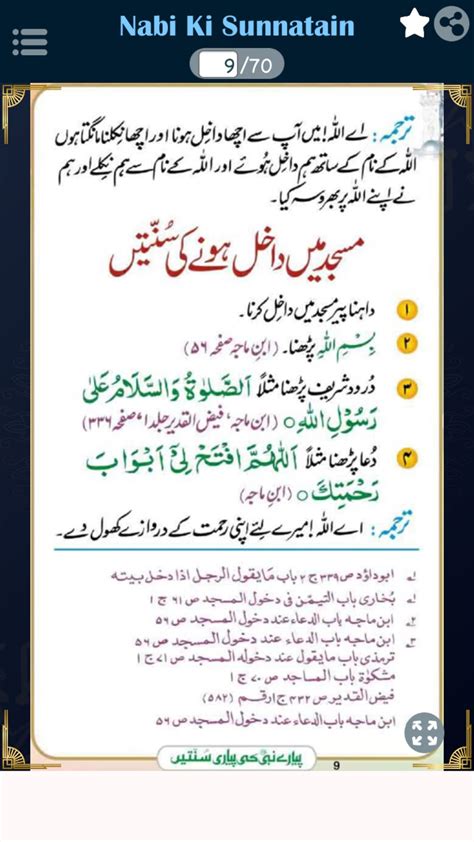 Nabi Ki Sunnatain
9 /70
ترجمہ: اے اللہ! میں آپ سے اچھا داخل ہونا اور اچھا نکلنا مانگتا ہوں
اللہ کے نام کے ساتھ ہم داخل ہوئے اور اللہ کے نام سے ہم نکلے اور ہم
نے اپنے اللہ پر بھروسہ کیا۔
مسجد میں داخل ہونے کی سُنّتیں
۱ داہنا پیر مسجد میں داخل کرنا۔
۲ بِسْمِ اللهِ پڑھنا۔ (ابن ماجہ صفحہ ۵۶)
۳ دُرود شریف پڑھنا مثلاً اَلصَّلٰوةُ وَالسَّلَامُ عَلٰى
رَسُوْلِ اللهِ ○ (ابن ماجہ، فیض القدیر جلد ۱، صفحہ ۳۳۶)
۴ دُعا پڑھنا مثلاً اَللّٰهُمَّ افْتَحْ لِىْٓ اَبْوَابَ
رَحْمَتِكَ ○ (ابن ماجہ)
ترجمہ: اے اللہ! میرے لئے اپنی رحمت کے دروازے کھول دے۔
لے ابوداؤد ص ۳۳۹ ج ۲ باب مایقول الرجل اذا دخل بیته
لے بُخاری باب التیمّن فی دخول المسجد ص ۶۱ ج ۱
۲ے ابن ماجه باب الدعاء عند دخول المسجد ص ۵۶
۳ے ابن ماجه باب الدعاء عند دخول المسجد ص ۵۶
ترمذی باب مایقول عند دخوله المسجد ص ۷۱ ج ۱
مشکوٰة باب المساجد ص ۷۰ ج ۱
فیض القدیر ص ۴۳۲ ج ۱ رقم (۵۸۲)
ابن ماجه باب الدعاء عند دخول المسجد ص ۵۶
پیارے نبی ﷺ کی پیاری سُنّتیں
9